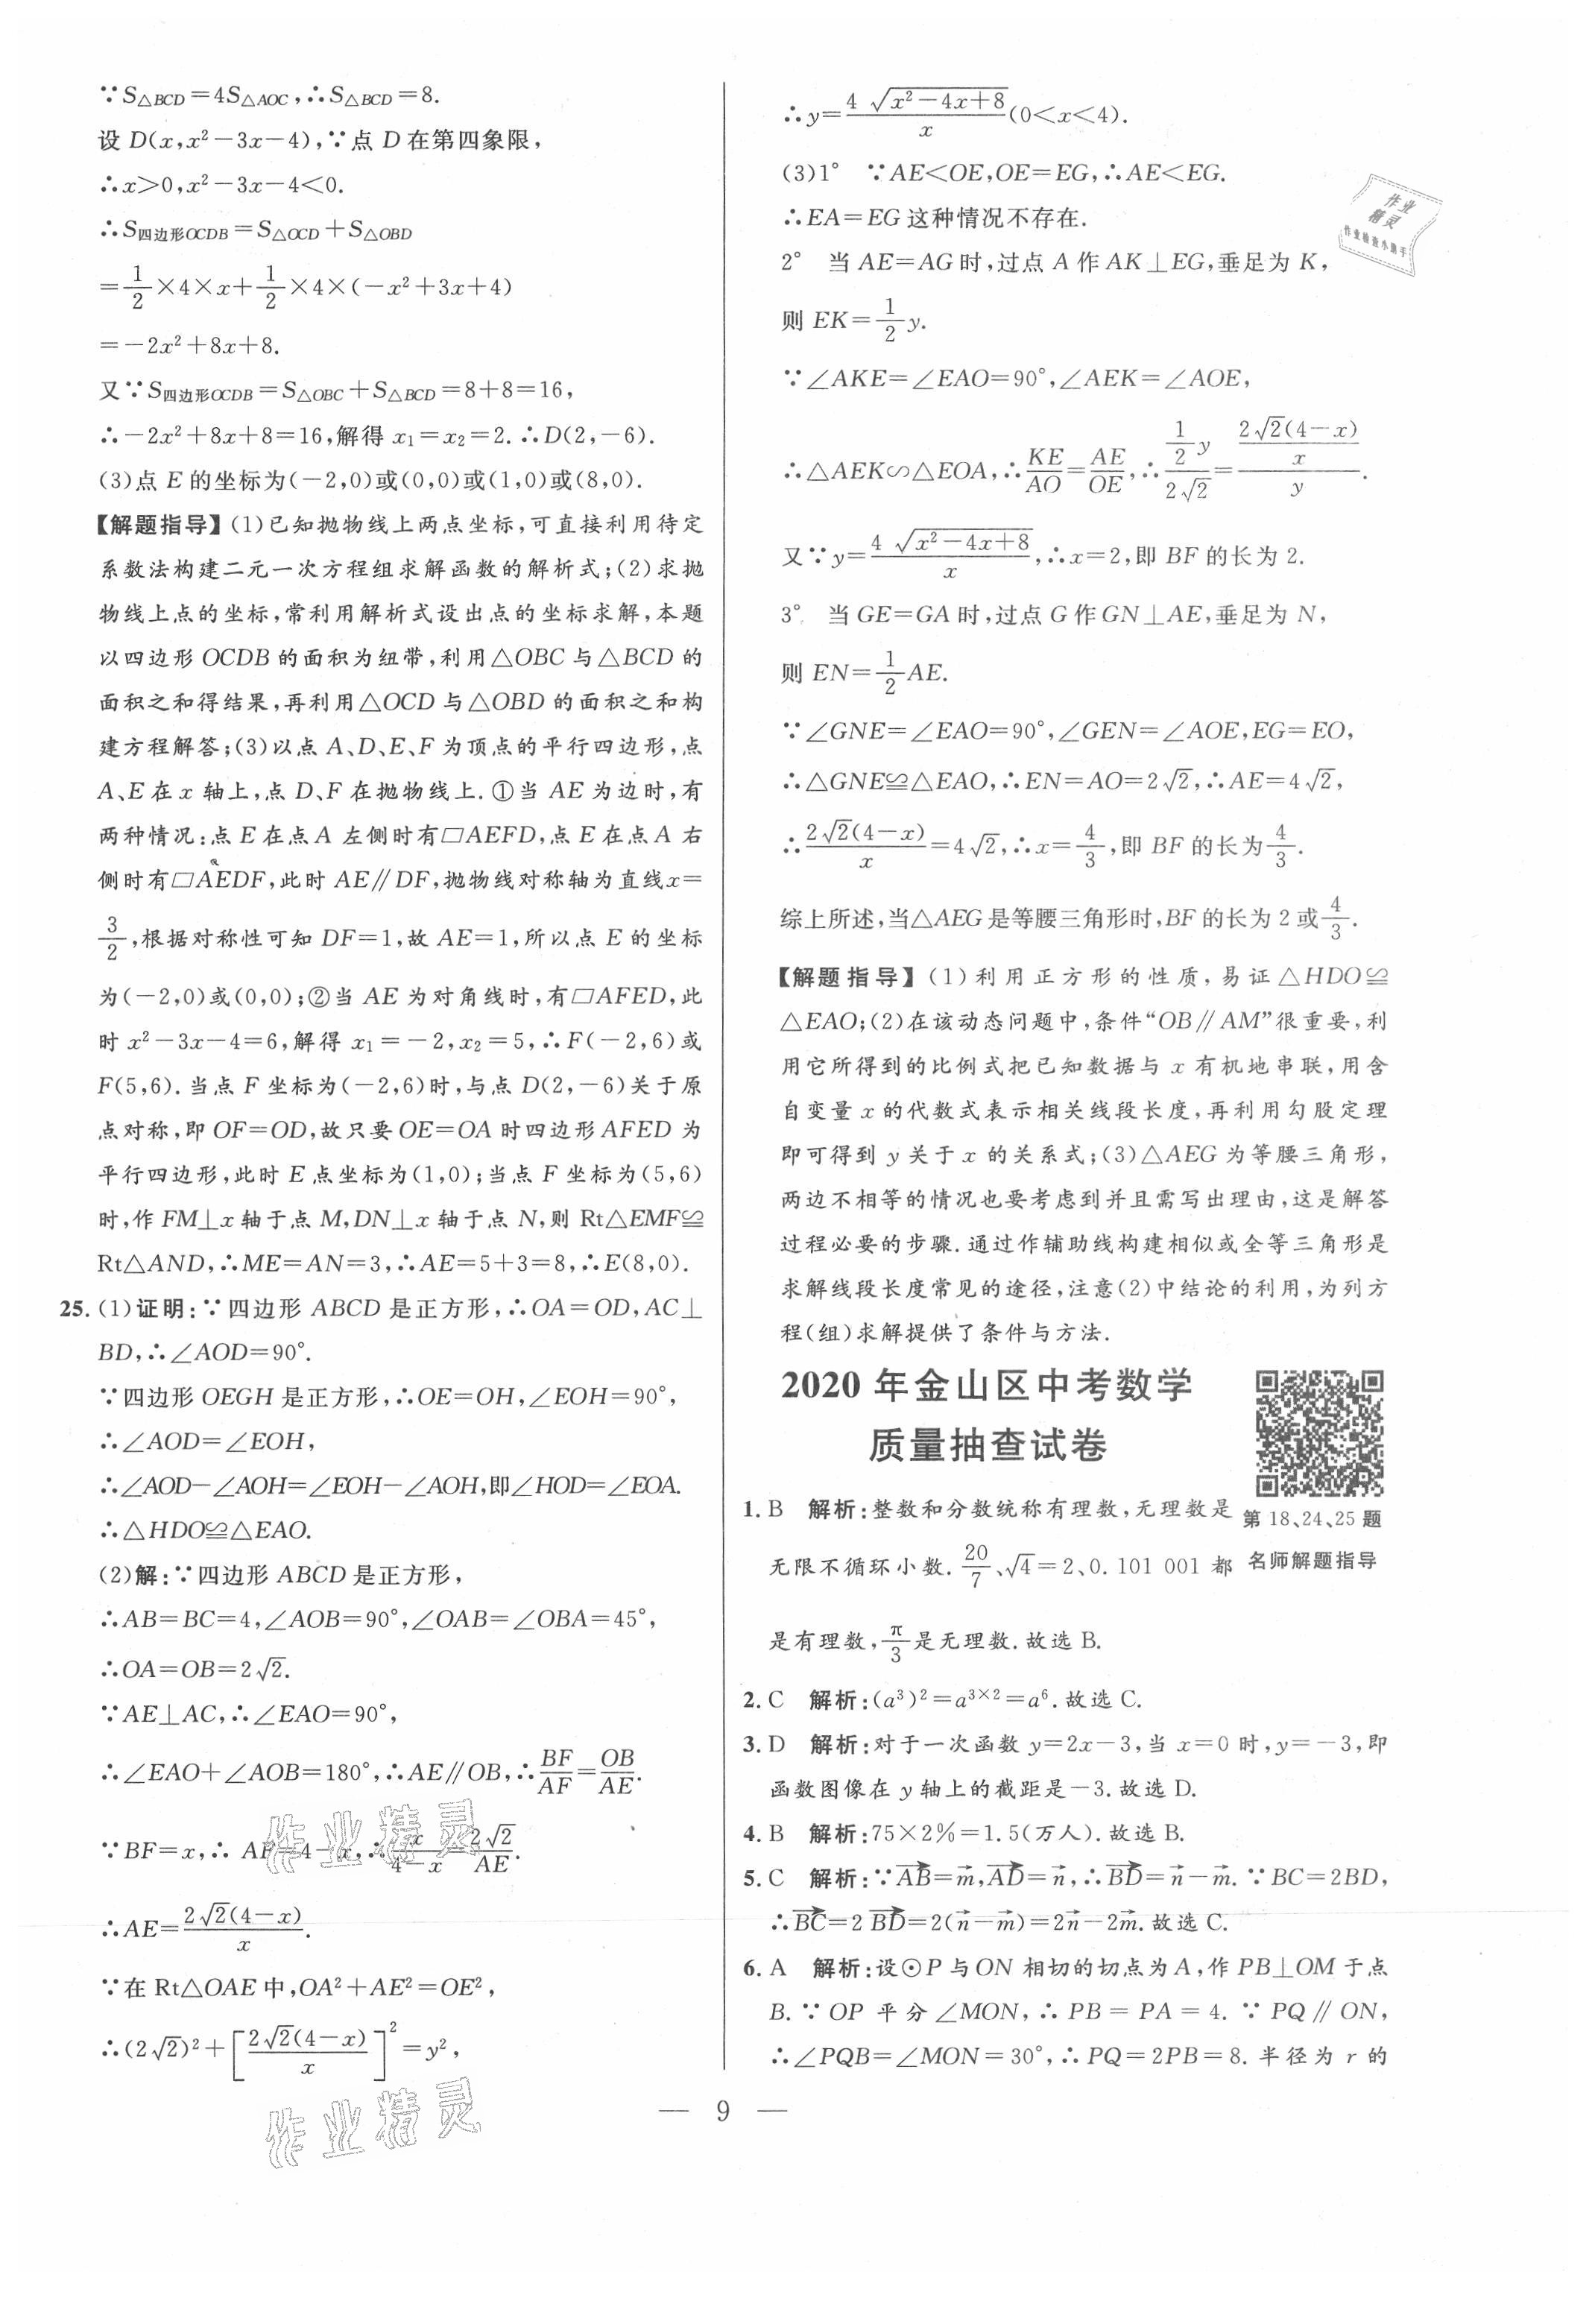 ∵S△BCD=4S△AOC,∴S△BCD=8.
设 D(x,x²-3x-4),∵点 D 在第四象限,
∴x>0,x²-3x-4<0.
∴S四边形OCDB=S△OCD+S△OBD
=1/2×4×x+1/2×4×(-x²+3x+4)
=-2x²+8x+8.
又∵S四边形OCDB=S△OBC+S△BCD=8+8=16,
∴-2x²+8x+8=16,解得 x₁=x₂=2.∴D(2,-6).
(3)点 E 的坐标为(-2,0)或(0,0)或(1,0)或(8,0).
【解题指导】(1)已知抛物线上两点坐标,可直接利用待定
系数法构建二元一次方程组求解函数的解析式;(2)求抛
物线上点的坐标,常利用解析式设出点的坐标求解,本题
以四边形 OCDB 的面积为纽带,利用△OBC 与△BCD 的
面积之和得结果,再利用△OCD 与△OBD 的面积之和构
建方程解答;(3)以点 A、D、E、F 为顶点的平行四边形,点
A、E 在 x 轴上,点 D、F 在抛物线上.①当 AE 为边时,有
两种情况:点 E 在点 A 左侧时有▱AEFD,点 E 在点 A 右
侧时有▱AEDF,此时 AE∥DF,抛物线对称轴为直线x=
3/2,根据对称性可知 DF=1,故 AE=1,所以点 E 的坐标
为(-2,0)或(0,0);②当 AE 为对角线时,有▱AFED,此
时 x²-3x-4=6,解得 x₁=-2,x₂=5,∴F(-2,6)或
F(5,6).当点 F 坐标为(-2,6)时,与点 D(2,-6)关于原
点对称,即 OF=OD,故只要 OE=OA 时四边形 AFED 为
平行四边形,此时 E 点坐标为(1,0);当点 F 坐标为(5,6)
时,作 FM⊥x 轴于点 M,DN⊥x 轴于点 N,则 Rt△EMF≌
Rt△AND,∴ME=AN=3,∴AE=5+3=8,∴E(8,0).
25.(1)证明:∵四边形 ABCD 是正方形,∴OA=OD,AC⊥
BD,∴∠AOD=90°.
∵四边形 OEGH 是正方形,∴OE=OH,∠EOH=90°,
∴∠AOD=∠EOH,
∴∠AOD-∠AOH=∠EOH-∠AOH,即∠HOD=∠EOA.
∴△HDO≌△EAO.
(2)解:∵四边形 ABCD 是正方形,
∴AB=BC=4,∠AOB=90°,∠OAB=∠OBA=45°,
∴OA=OB=2√2.
∵AE⊥AC,∴∠EAO=90°,
∴∠EAO+∠AOB=180°,∴AE∥OB,∴BF/AF=OB/AE.
∵BF=x,∴AF=4-x,∴x/(4-x)=2√2/AE.
∴AE=2√2(4-x)/x.
∵在 Rt△OAE 中,OA²+AE²=OE²,
∴(2√2)²+[2√2(4-x)/x]²=y²,
作业精灵
作业精灵
∴y=4√(x²-4x+8)/x(0<x<4).
(3)1° ∵AE<OE,OE=EG,∴AE<EG.
∴EA=EG这种情况不存在.
2° 当 AE=AG 时,过点 A 作 AK⊥EG,垂足为 K,
则 EK=1/2y.
∵∠AKE=∠EAO=90°,∠AEK=∠AOE,
∴△AEK∽△EOA,∴KE/AO=AE/OE,∴(1/2y)/(2√2)=(2√2(4-x)/x)/y.
又∵y=4√(x²-4x+8)/x,∴x=2,即 BF 的长为 2.
3° 当 GE=GA 时,过点 G 作 GN⊥AE,垂足为 N,
则 EN=1/2AE.
∵∠GNE=∠EAO=90°,∠GEN=∠AOE,EG=EO,
∴△GNE≌△EAO,∴EN=AO=2√2,∴AE=4√2,
∴2√2(4-x)/x=4√2,∴x=4/3,即 BF 的长为4/3.
综上所述,当△AEG是等腰三角形时,BF的长为 2 或4/3.
【解题指导】(1)利用正方形的性质,易证△HDO≌
△EAO;(2)在该动态问题中,条件“OB∥AM”很重要,利
用它所得到的比例式把已知数据与 x 有机地串联,用含
自变量 x 的代数式表示相关线段长度,再利用勾股定理
即可得到 y 关于 x 的关系式;(3)△AEG 为等腰三角形,
两边不相等的情况也要考虑到并且需写出理由,这是解答
过程必要的步骤.通过作辅助线构建相似或全等三角形是
求解线段长度常见的途径,注意(2)中结论的利用,为列方
程(组)求解提供了条件与方法.
作业
精灵
作业检查小助手
2020 年金山区中考数学
质量抽查试卷
第 18、24、25 题
名师解题指导
1. B 解析:整数和分数统称有理数,无理数是
无限不循环小数.20/7、√4=2、0.101 001 都
是有理数,π/3是无理数.故选 B.
2. C 解析:(a³)²=a³ˣ²=a⁶.故选 C.
3. D 解析:对于一次函数 y=2x-3,当 x=0 时,y=-3,即
函数图像在 y 轴上的截距是-3.故选 D.
4. B 解析:75×2%=1.5(万人).故选 B.
5. C 解析:∵AB⃗=m⃗,AD⃗=n⃗,∴BD⃗=n⃗-m⃗.∵BC=2BD,
∴BC⃗=2BD⃗=2(n⃗-m⃗)=2n⃗-2m⃗.故选 C.
6. A 解析:设⊙P 与ON 相切的切点为 A,作 PB⊥OM 于点
B.∵OP 平分∠MON,∴PB=PA=4.∵PQ∥ON,
∴∠PQB=∠MON=30°,∴PQ=2PB=8.半径为 r 的
— 9 —